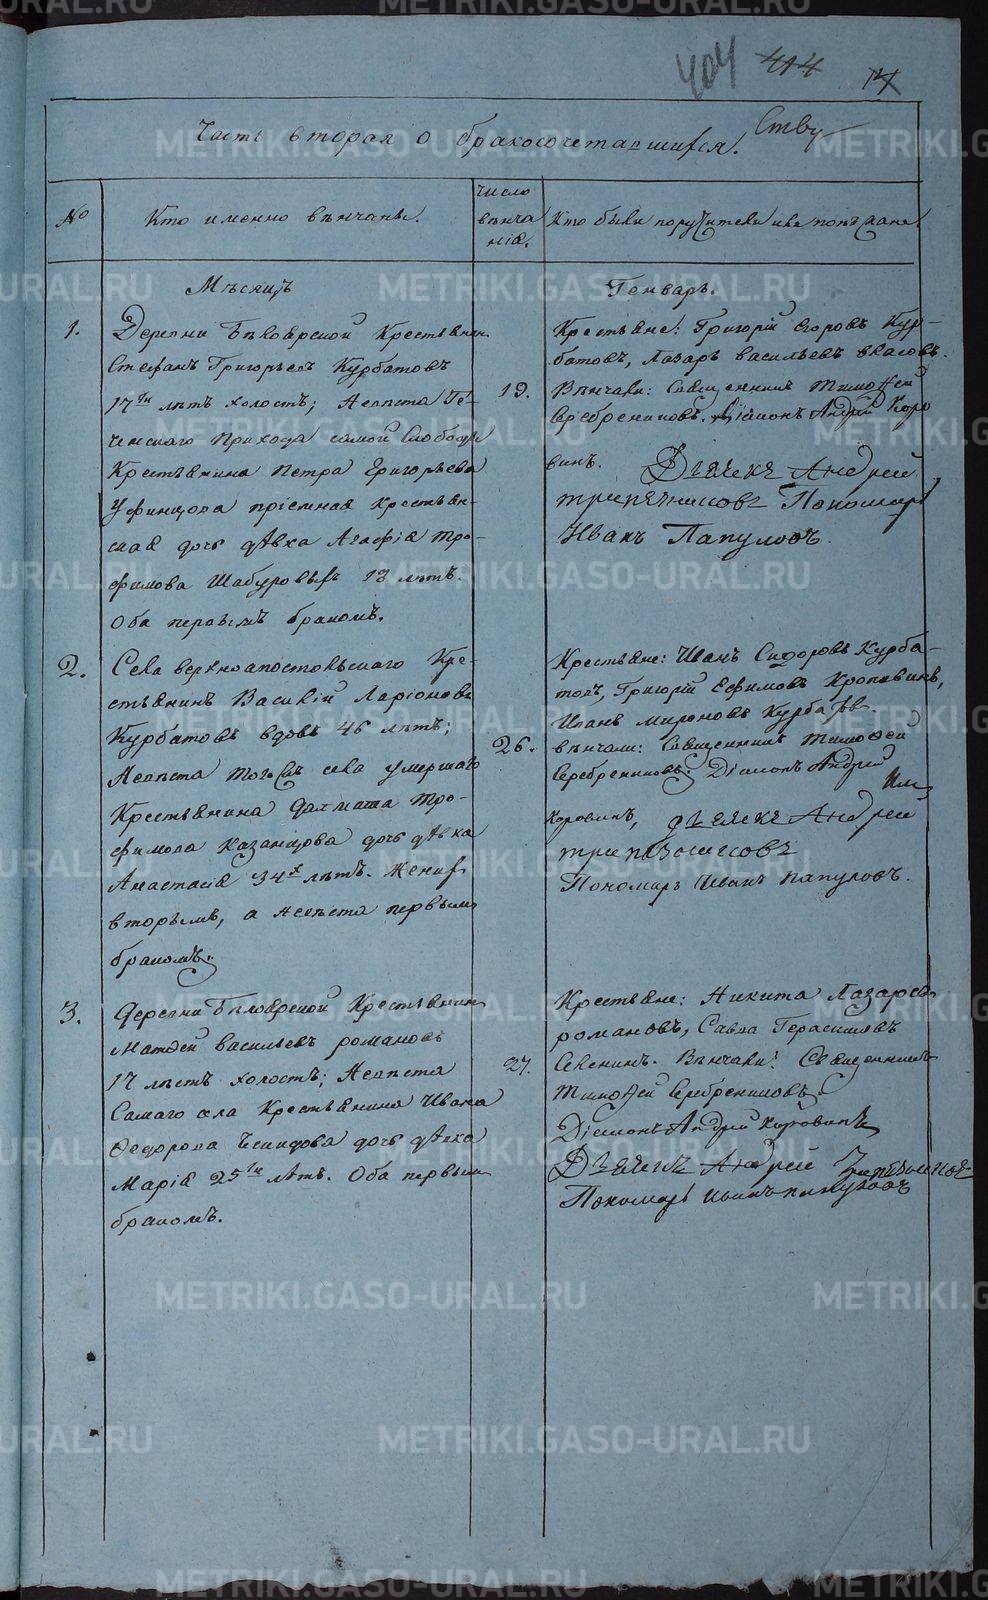 404 414
Часть вторая о бракосочетавшихся.
№
Кто именно вѣнчаны.
число вѣнчанія.
Кто были поручители и кто вѣнчалъ
Мѣсяцъ
Генварь.
1.
Деревни Бѣлоярской Крестьянинъ
Стефанъ Григорьевъ Курбатовъ
17ти лѣтъ холостъ; Невѣста
ченскаго Прихода самой Слободы
Крестьянина Петра Григорьева
Уфинцова пріемная Крестьян-
ская дочь дѣвка Агафія Тро-
фимова Шабуровыхъ 18 лѣтъ.
Оба первымъ бракомъ.
19.
Крестьяне: Григорій Егоровъ Кур-
батовъ, Лазарь Васильевъ Власовъ.
Вѣнчали: Священникъ Тимоѳей
Серебрениковъ. Діаконъ Андрей Коро
винъ. Дьячекъ Андрей
Трапезниковъ Пономарь
Иванъ Папуловъ.
2.
Села Верхноапостольскаго Кре-
стьянинъ Василій Ларіоновъ
Курбатовъ вдовъ 46 лѣтъ;
Невѣста тогожъ села умершаго
Крестьянина Далмата Тро-
фимова Казанцова дочь дѣвка
Анастасія 34х лѣтъ. Женихъ
вторымъ, а невѣста первымъ
бракомъ.
26.
Крестьяне: Иванъ Сидоровъ Курба-
товъ, Григорій Ефимовъ Кропавинъ,
Иванъ Мироновъ Курбатовъ.
вѣнчали: Священникъ Тимоѳей
Серебрениковъ; Діаконъ Андрей
Коровинъ, дьячекъ Андрей
Трапезниковъ
Пономарь Иванъ Папуловъ.
3.
Деревни Бѣлоярской Крестьянинъ
Матѳей Васильевъ Романовъ
17 лѣтъ холостъ; Невѣста
Самаго села Крестьянина Ивана
Ѳедорова дочь дѣвка
Марія 25ти лѣтъ. Оба первымъ
бракомъ.
27.
Крестьяне: Никита Лазаревъ
Романовъ, Савва Герасимовъ
Вѣнчали: Священникъ
Тимоѳей Серебрениковъ
Діаконъ Андрей Коровинъ
Дьячекъ Андрей Трапезниковъ
Пономарь Иванъ Папуловъ
METRIKI.GASO-URAL.RU